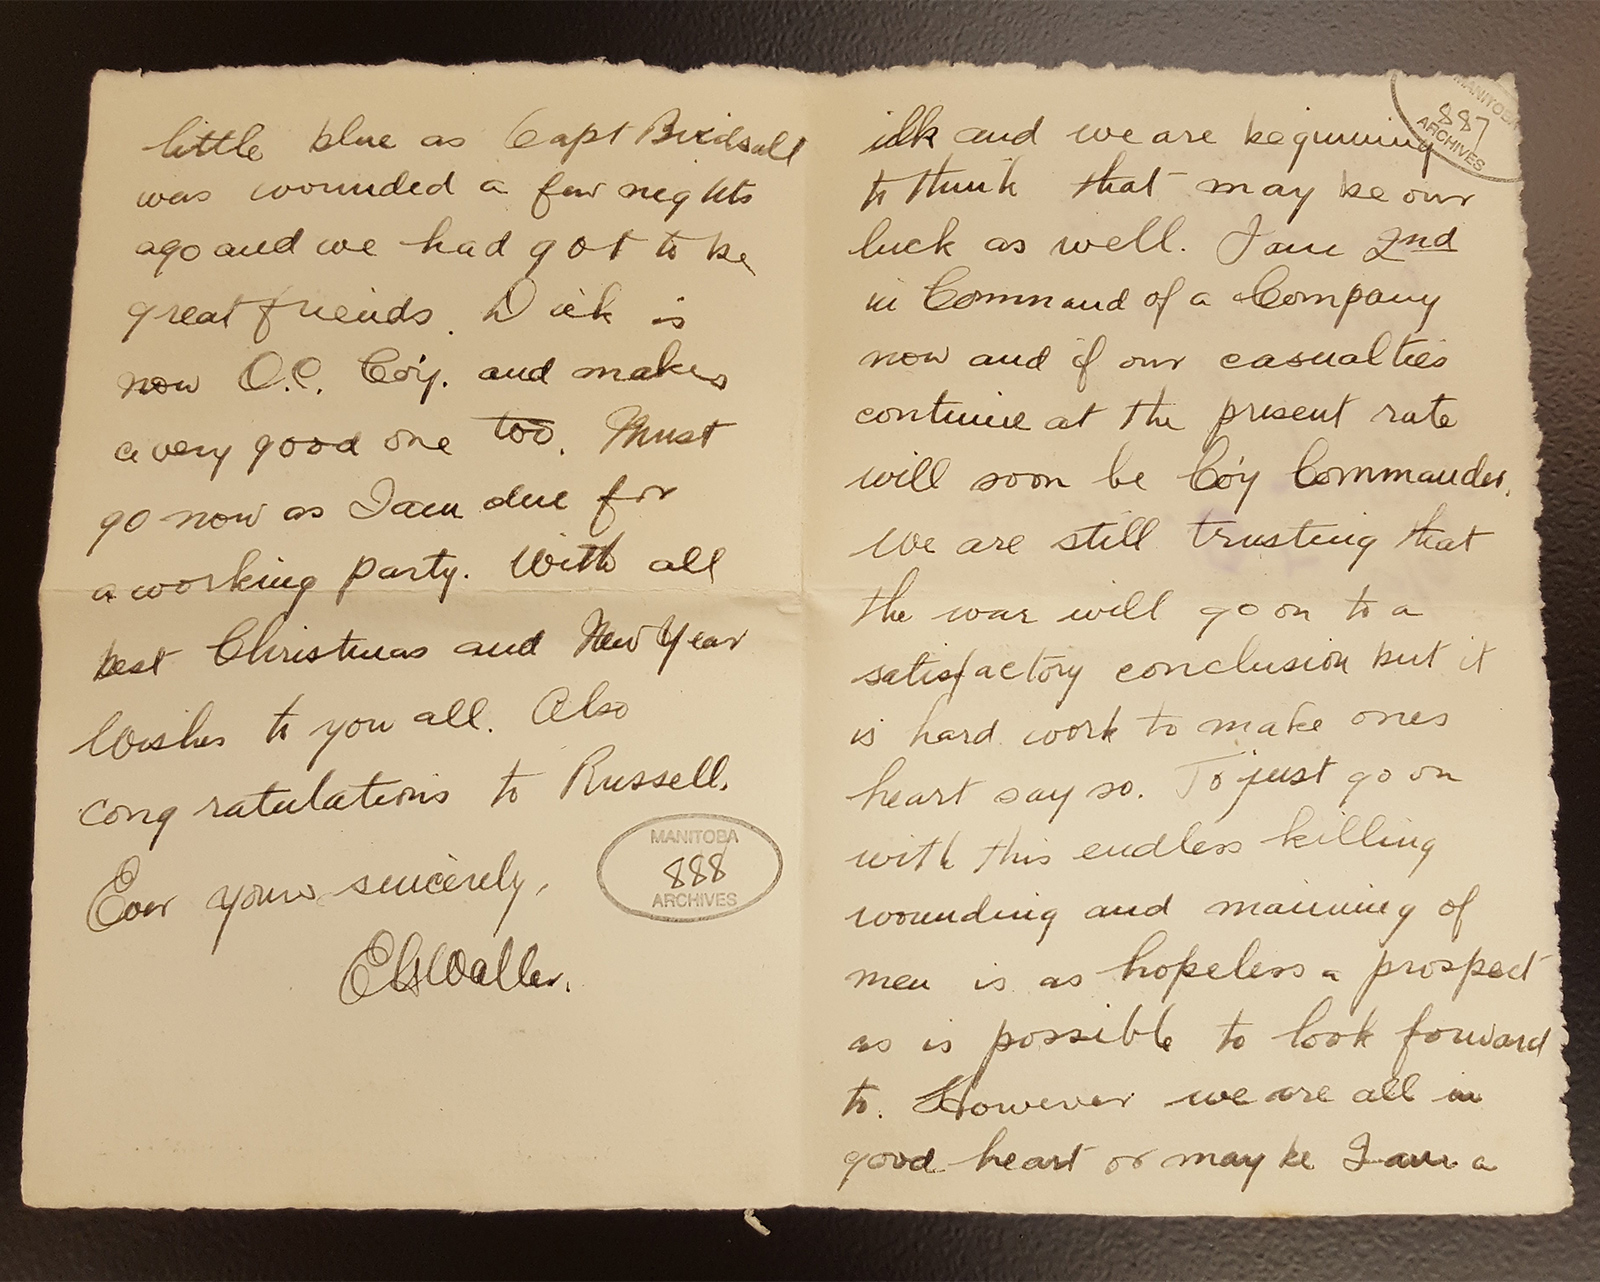 MANITOBA
887
ARCHIVES
ilk and we are beginning
to think that may be our
luck as well. I am 2nd
in Command of a Company
now and if our casualties
continue at the present rate
will soon be Co'y Commander.
We are still trusting that
the war will go on to a
satisfactory conclusion but it
is hard work to make ones
heart say so. To just go on
with this endless killing
wounding and maiming of
men is as hopeless a prospect
as is possible to look forward
to. However we are all in
good heart or may be I am a
little blue as Capt Birdsall
was wounded a few nights
ago and we had got to be
great friends. Dick is
now O.C. Co'y. and makes
a very good one too. Must
go now as I am due for
a working party. With all
best Christmas and New Year
Wishes to you all. Also
congratulations to Russell.
Ever yours sincerely,
EGWaller.
MANITOBA
888
ARCHIVES